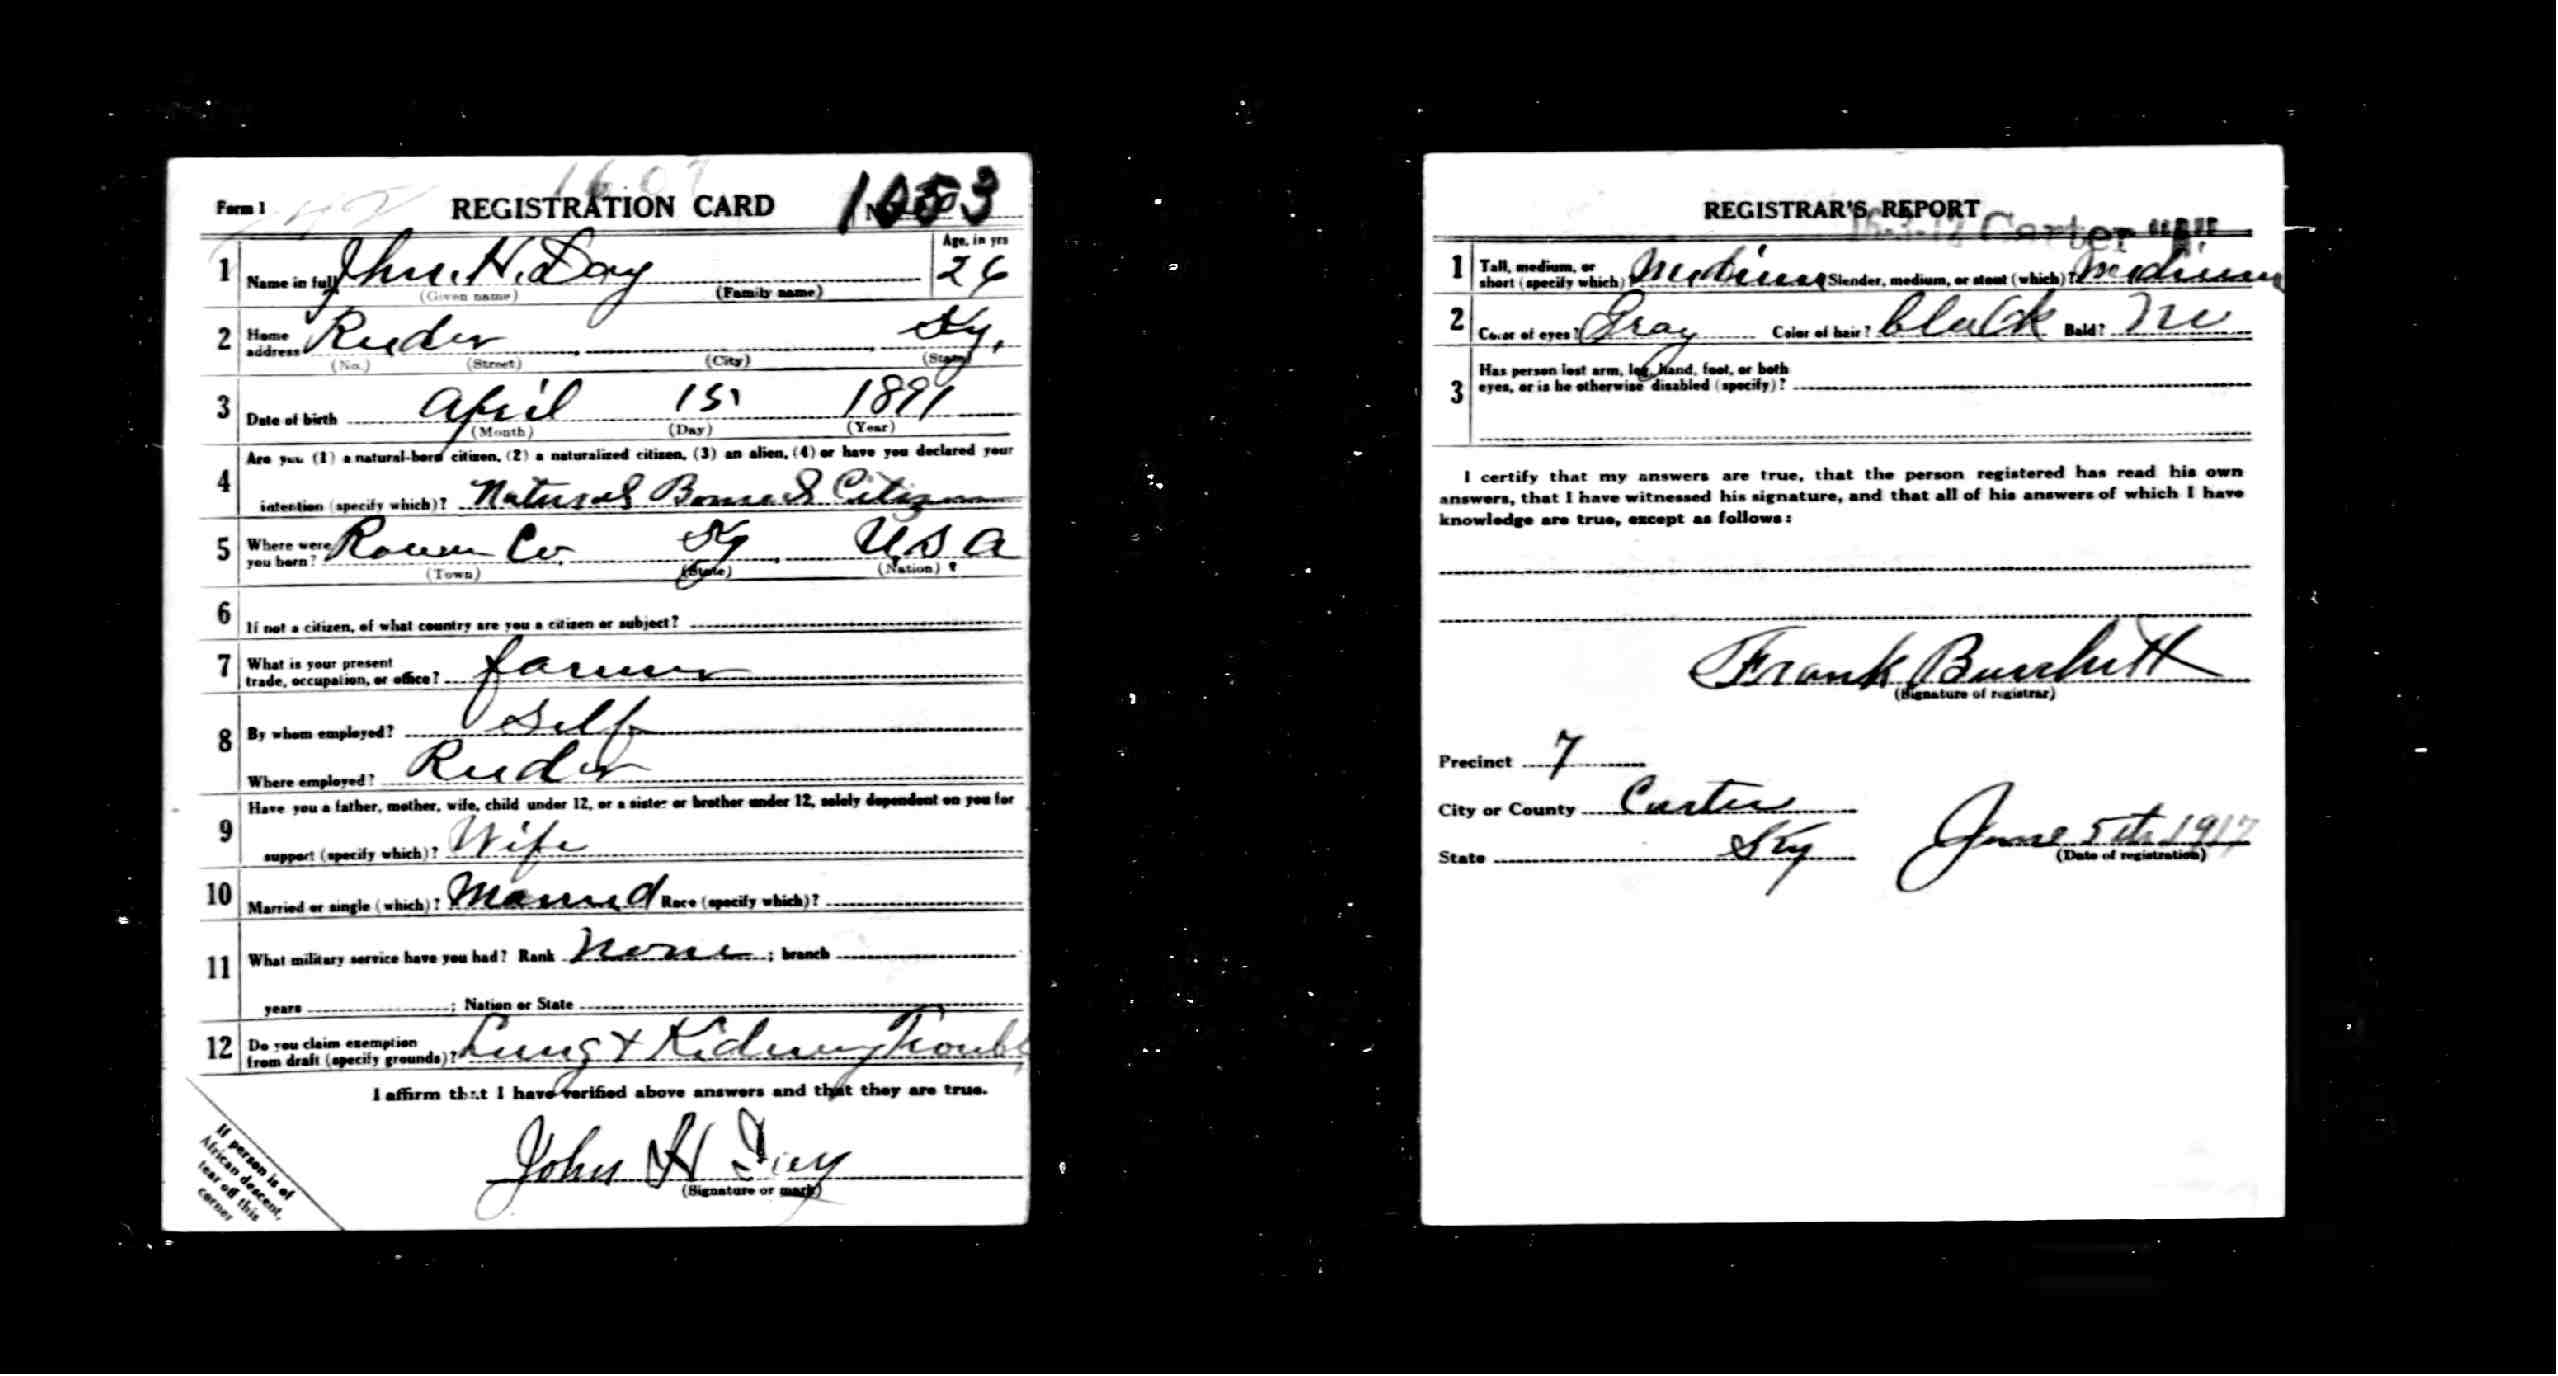 Form 1 REGISTRATION CARD 1053
1 Name in full Jhn. H. Day Age, in yrs 26
(Given name) (Family name)
2 Home address Reeder Ky,
(No.) (Street) (City) (State)
3 Date of birth April 1st 1891
(Month) (Day) (Year)
4 Are you (1) a natural-born citizen, (2) a naturalized citizen, (3) an alien, (4) or have you declared your
intention (specify which)? Natural Borned Citizen
5 Where were you born? Rowan Co Ky USA
(Town) (State) (Nation)
6 If not a citizen, of what country are you a citizen or subject?
7 What is your present trade, occupation, or office? farmer
8 By whom employed? Self
Where employed? Reeder
9 Have you a father, mother, wife, child under 12, or a sister or brother under 12, solely dependent on you for
support (specify which)? Wife
10 Married or single (which)? Married Race (specify which)?
11 What military service have you had? Rank none ; branch
years ; Nation or State
12 Do you claim exemption from draft (specify grounds)? Lung + Kidney Trouble
I affirm that I have verified above answers and that they are true.
John H Day
(Signature or mark)
If person is of
African descent,
tear off this
corner
REGISTRAR'S REPORT
Carter
1 Tall, medium, or short (specify which)? Medium Slender, medium, or stout (which)? Medium
2 Color of eyes? Gray Color of hair? black Bald? No
3 Has person lost arm, leg, hand, foot, or both
eyes, or is he otherwise disabled (specify)?
I certify that my answers are true, that the person registered has read his own
answers, that I have witnessed his signature, and that all of his answers of which I have
knowledge are true, except as follows:
Frank Burchett
(Signature of registrar)
Precinct 7
City or County Carter
State Ky June 5th 1917
(Date of registration)